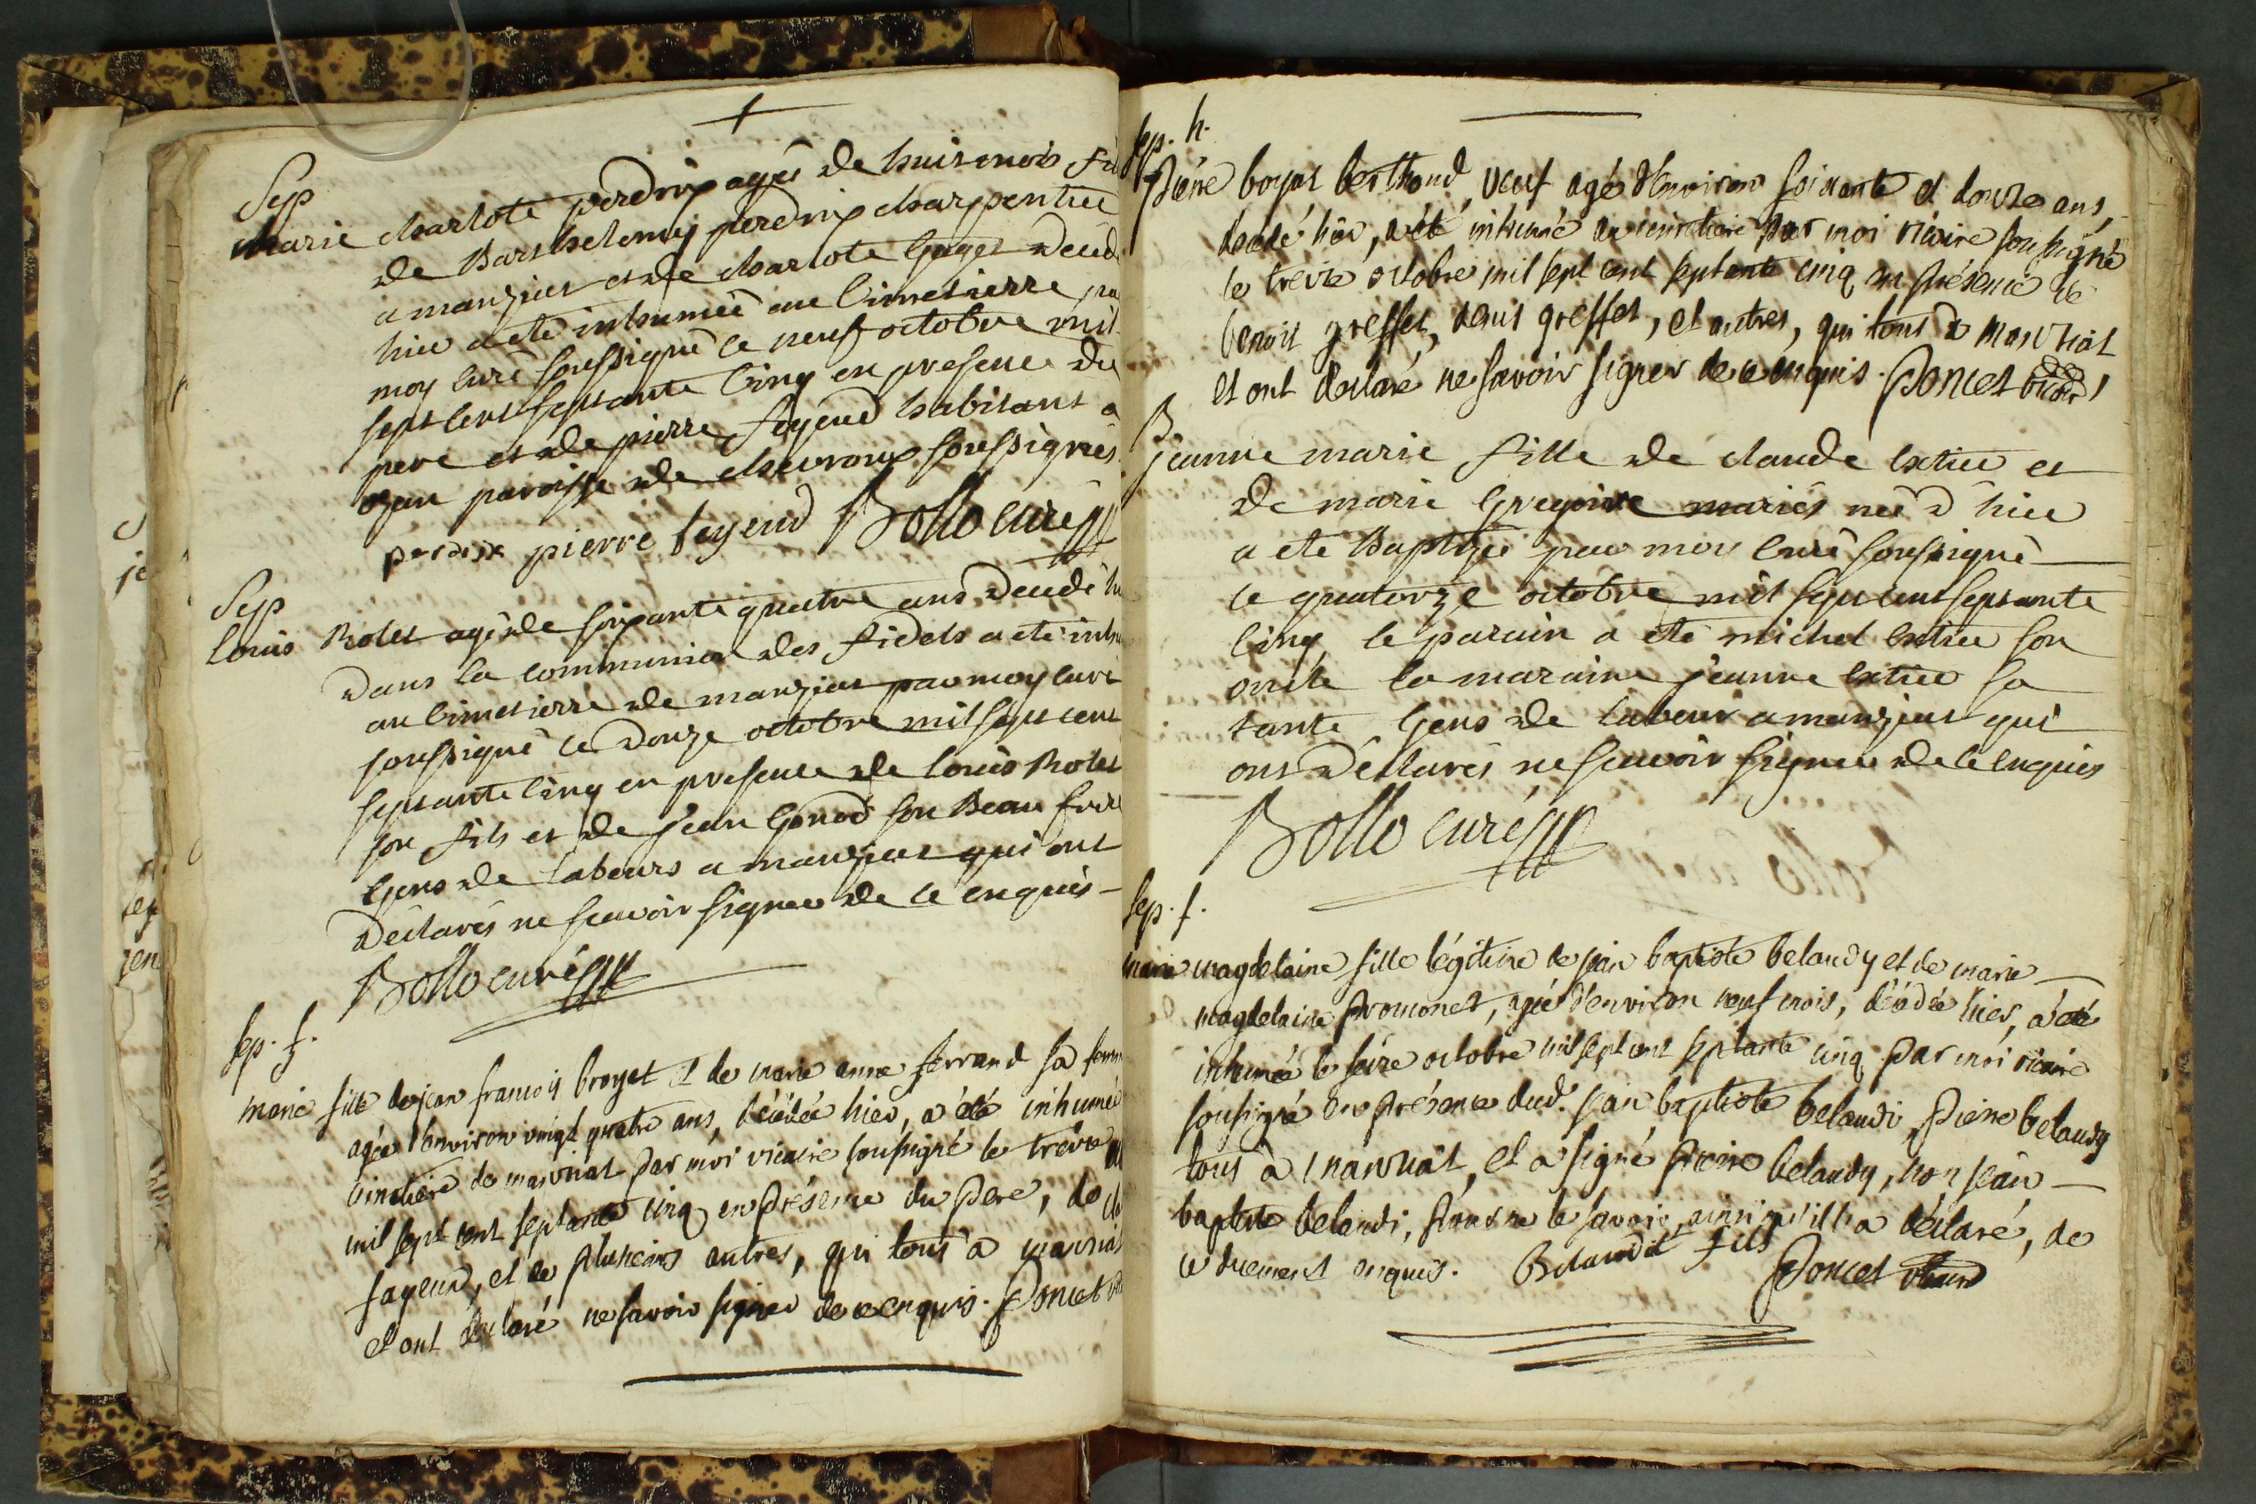 Sep
Marie charlote perdrix agés de huit mois fi
de Barthelemy perdrix charpentier
a manziat et de charlote Guget deced
hier a ete inhumeé au Cimetierre pa
moy curé soussigné ce neuf octobre mil
sept cent septante Cinq en presence du
pere et de pierre feyeud habitant a
ozan paroisse de chevroux soussignés
perdrix pierre feyeud Bollo curé
Sep
Louis Rolet agé de soixante quatre ans decedé hi
dans la communion des fidels a eté inhu
au Cimetierre de manziat par moy curé
soussigné ce douze octobre mil sept cent
septante Cinq en presence de Louis Rolet
son fils et de jean Gonod son Beau frere
Gens de labeurs a manziat qui ont
déclarés ne scavoir signer de ce enquis
Bollo curé
sep. f.
marie fille de jean francois broyet et de marie anne ferrand sa femm
agée d'environ vingt quatre ans, décédée hier, a été inhumée
cimetiére de manziat par moi vicaire soussigné le treize
mil sept cent septante cinq en présence du pere, de
fayeud, et de plusieurs autres, qui tous à manziat
et ont déclaré ne savoir signer de ce enquis. Poncet
sep. h.
Piérre boyat berthoud, veuf agé d'environ soixante et douze ans,
décédé hier, a été inhumé au cimetiére par moi vicaire soussigné
le treize octobre mil sept cent septante cinq en présence de
benoit greffet, denis greffet, et autres, qui tous à manziat
et ont déclaré ne savoir signer de ce enquis. Poncet vicaire
B
jeanne marie fille de claude Extier et
de marie Gregoire mariés neé d'hier
a ete Baptizée par moy curé soussigné
ce quatorze octobre mil sept cent septante
Cinq, le parain a été michel Extier son
oncle la maraine jeanne Extier sa
tante Gens de labeur a manziat qui
ont déclarés ne scavoir signer de ce enquis
Bollo curé
sep. f.
marie magdelaine fille légitime de jean baptiste belaudy et de marie
magdelaine Promonet, agée d'environ neuf mois, décédée hier, a été
inhumée le seize octobre mil sept cent septante cinq par moi vicaire
soussigné en présence dud. jean baptiste belaudi, Pierre belaudy
tous à manziat, et a signé Pierre belaudy, non jean
baptiste belaudi, pour ne le savoir, ainsi qu'il l'a déclaré, de
ce duement enquis. Belaudit fils Poncet vicaire